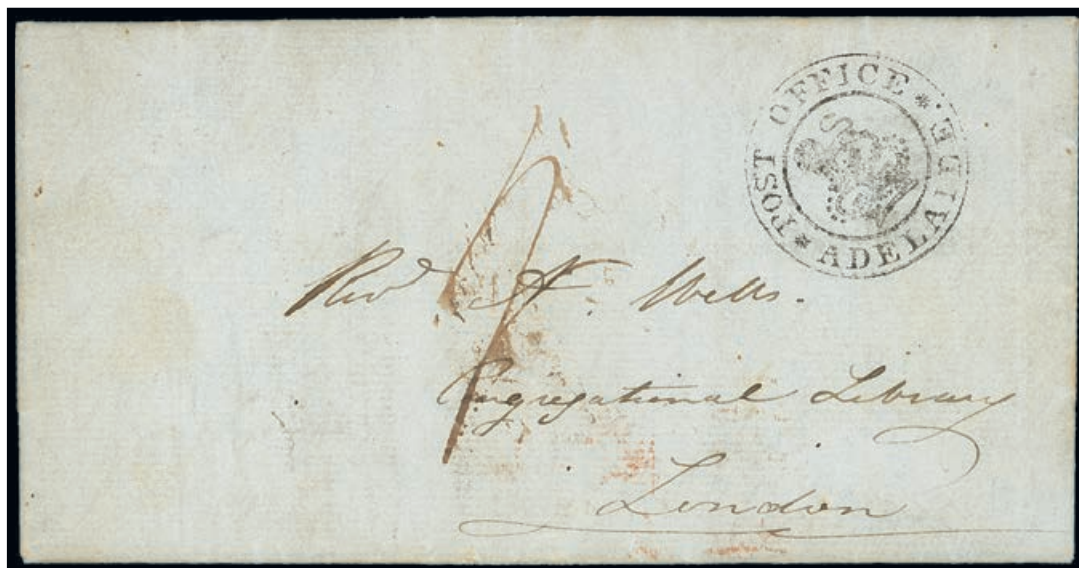 POST OFFICE * ADELAIDE *
Revd A. Wells.
Congregational Library
London